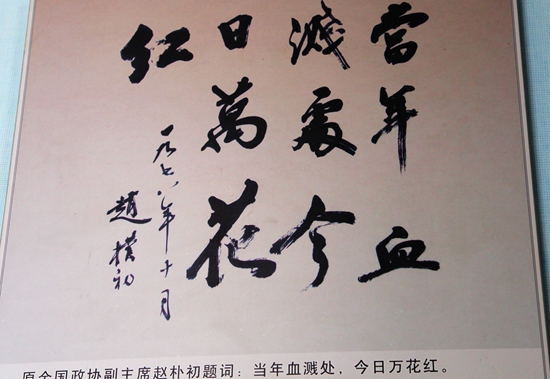 當年血
濺處今
日萬花
红
一九七八年十月
趙樸初
原全国政协副主席赵朴初题词：当年血溅处，今日万花红。